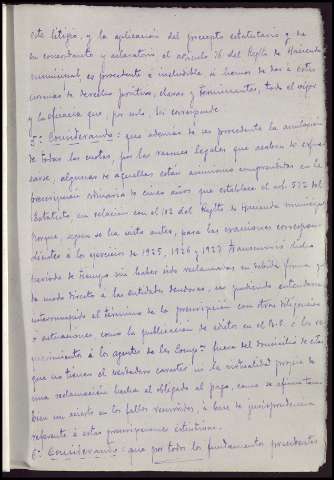 este litigio, y la aplicación del precepto estatutario y de
su concordante y aclaratorio el artículo 76 del Reglto de Hacienda
municipal, es procedente e ineludible si hemos de dar a estas
normas de derecho positivo, claras y terminantes, todo el vigor
y la eficacia que, por esto, les corresponde.
5º Considerando: que además de ser procedente la anulación
de todas las cuotas, por las razones legales que acaban de expre-
sarse, algunas de aquellas están asimismo comprendidas en la
prescripción ordinaria de cinco años que establece el art. 572 del
Estatuto, en relación con el 102 del Reglto de Hacienda municipal
porque, según se ha visto antes, para las exacciones correspon-
dientes a los ejercicios de 1925, 1926 y 1927 transcurrió dicho
período de tiempo sin haber sido reclamadas en debida forma y
de modo directo a las entidades deudoras, no pudiendo entenderse
interrumpido el término de la prescripción con otras diligencias
o actuaciones como la publicación de edictos en el B.O. o los re-
querimientos a los agentes de las Compas fuera del domicilio de estas
que no tienen el verdadero carácter ni la virtualidad propia de
una reclamación hecha al obligado al pago, como se afirma tam-
bién con acierto en los fallos recurridos, a base de jurisprudencia
referente a estas prescripciones extintivas.
6º Considerando: que por todos los fundamentos precedentes